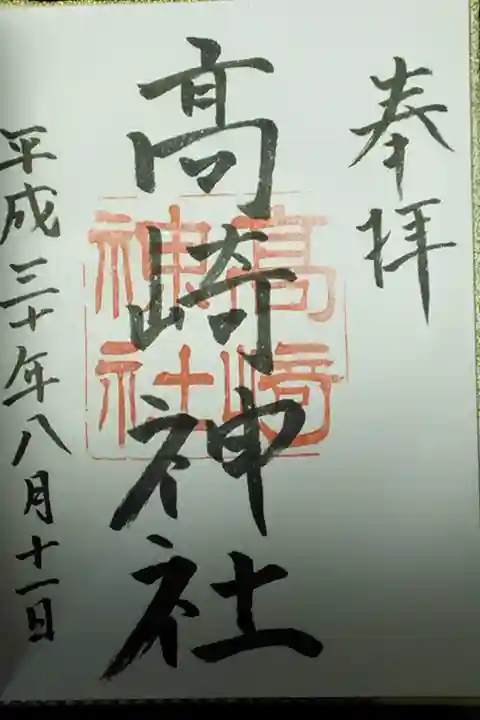 奉拝
高崎神社
高崎
神社
平成三十年八月十一日